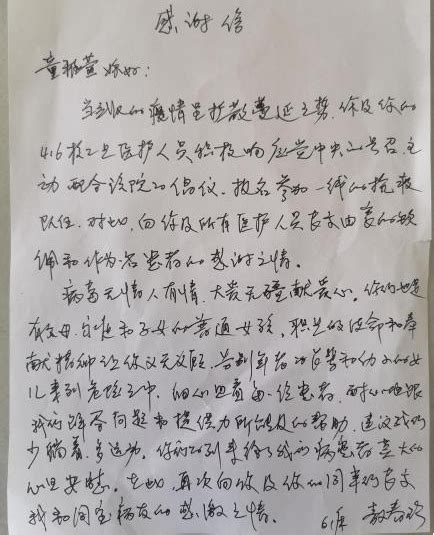 感谢信
童雅萱你好:
当武汉的疫情呈扩散蔓延之势,你及你的
416核工业医护人员积极响应党中央的号召,主
动配合该院的倡仪,报名参加一线的抗疫
队伍。对此,向你及所有医护人员表示由衷的钦
佩和作为名患者的感谢之情。
病毒无情人有情,大爱无疆献爱心。你们也是
有父母、自
和子女的普通女孩,职业的使命和奉
献精神让你义无反顾,告别年老的
和幼小的女
儿来到危险之中,细心照看每一位患者,耐心地跟
我们解答问题和提供力所能及的帮助,建议我们
少躺着,多运动。你们的到来给我们病患者莫大的
心里安慰。在此,再次向你及你的同事们表示
我和同室病友的感激之情。
61床